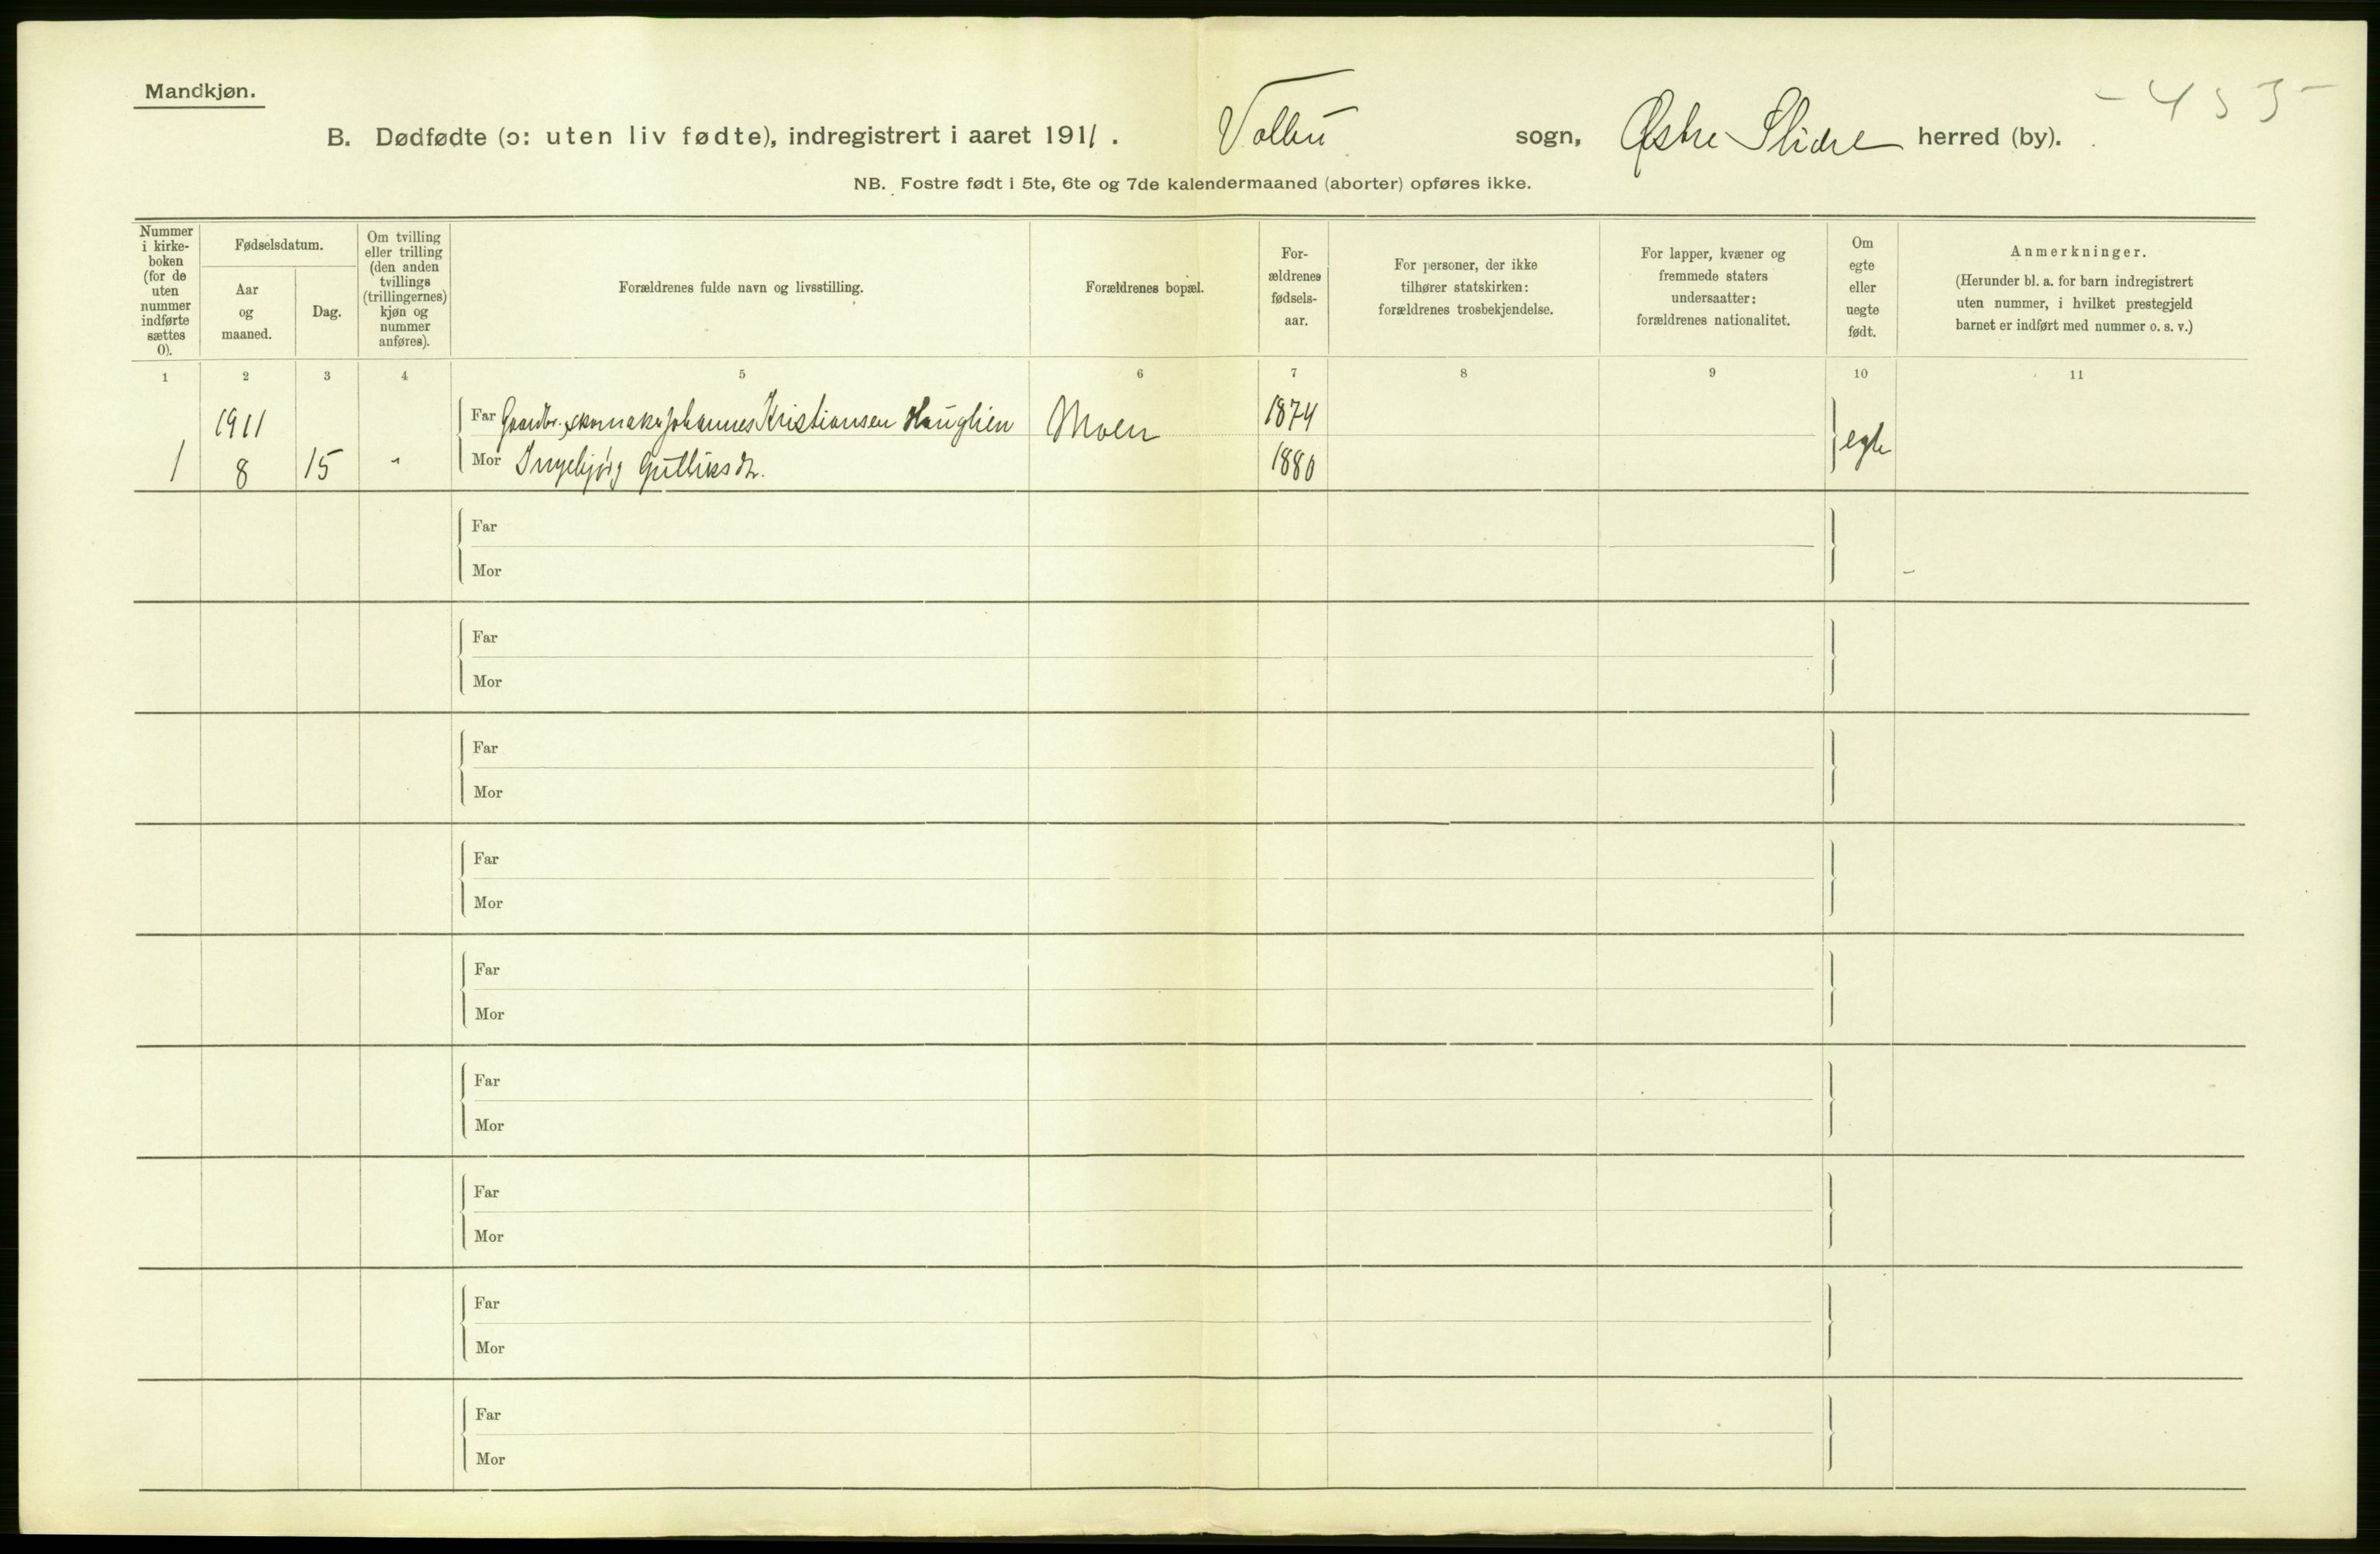 Mandkjøn.
- 4 5 5 -
B. Dødfødte (ɔ: uten liv fødte), indregistrert i aaret 1911. Volbu sogn, Østre Slidre herred (by).
NB. Fostre født i 5te, 6te og 7de kalendermaaned (aborter) opføres ikke.
Nummer
i kirke-
boken
(for de
uten
nummer
indførte
sættes
0).
Fødselsdatum.
Aar
og
maaned.
Dag.
Om tvilling
eller trilling
(den anden
tvillings
(trillingernes)
kjøn og
nummer
anføres).
Forældrenes fulde navn og livsstilling.
Forældrenes bopæl.
For-
ældrenes
fødsels-
aar.
For personer, der ikke
tilhører statskirken:
forældrenes trosbekjendelse.
For lapper, kvæner og
fremmede staters
undersaatter:
forældrenes nationalitet.
Om
egte
eller
uegte
født.
Anmerkninger.
(Herunder bl. a. for barn indregistrert
uten nummer, i hvilket prestegjeld
barnet er indført med nummer o. s. v.)
1 2 3 4 5 6 7 8 9 10 11
1911 Far Gaardbr. skomaker Johannes Kristiansen Hauglien Moen 1874
1 8 15 " Mor Ingebjørg Gulliksdtr. 1880 egte
Far
Mor
Far
Mor
Far
Mor
Far
Mor
Far
Mor
Far
Mor
Far
Mor
Far
Mor
Far
Mor